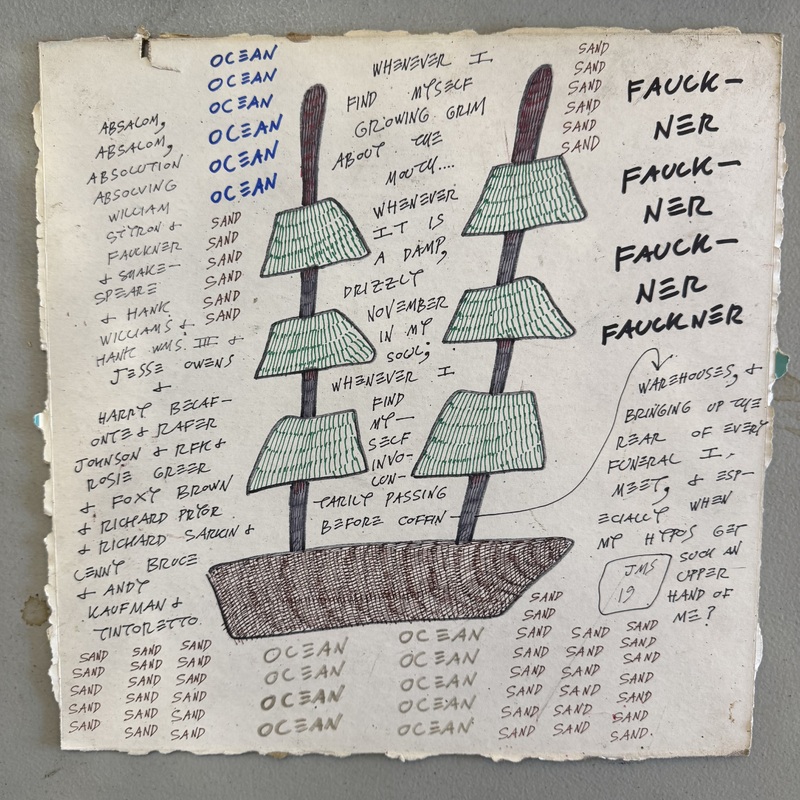 ABSALOM,
ABSALOM,
ABSOLUTION
ABSOLVING
WILLIAM
STYRON &
FAUCKNER
& SHAKE—
SPEARE
& HANK
WILLIAMS &
HANK WMS. III &
JESSE OWENS
&
HARRY BELAF—
ONTE & RAFER
JOHNSON & RFK &
ROSIE GREER
& FOXY BROWN
& RICHARD PRYOR
& RICHARD SARKIN &
LENNY BRUCE
& ANDY
KAUFMAN &
TINTORETTO.
OCEAN
OCEAN
OCEAN
OCEAN
OCEAN
OCEAN
SAND
SAND
SAND
SAND
SAND
SAND
WHENEVER I
FIND MYSELF
GROWING GRIM
ABOUT THE
MOUTH....
WHENEVER
IT IS
A DAMP,
DRIZZLY
NOVEMBER
IN MY
SOUL;
WHENEVER I
FIND
MY—
SELF
INVO—
LUN—
TARILY PASSING
BEFORE COFFIN
SAND
SAND
SAND
SAND
SAND
SAND
FAUCK—
NER
FAUCK—
NER
FAUCK—
NER
FAUCKNER
WAREHOUSES, &
BRINGING UP THE
REAR OF EVERY
FUNERAL I,
MEET, & ESP—
ECIALLY WHEN
MY HYPOS GET
SUCH AN
UPPER
HAND OF
ME?
JMS
19
SAND SAND SAND
SAND SAND SAND
SAND SAND SAND
SAND SAND SAND
SAND SAND SAND
OCEAN OCEAN
OCEAN OCEAN
OCEAN OCEAN
OCEAN OCEAN
SAND
SAND
SAND SAND SAND
SAND SAND SAND
SAND SAND SAND
SAND SAND SAND
SAND SAND SAND
SAND SAND SAND.